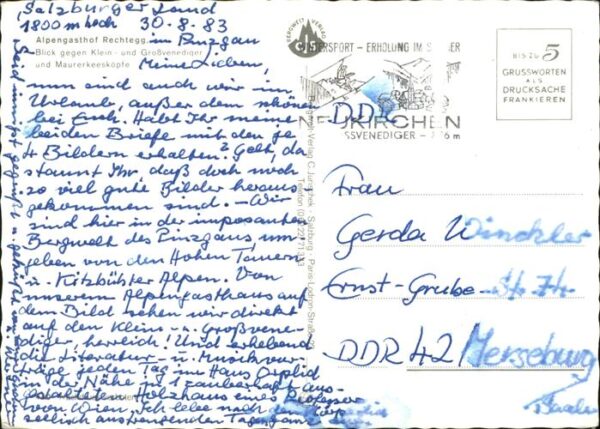 Salzburger Land
1800 m hoch 30.8.83
Alpengasthof Rechtegg, im Pinzgau
Blick gegen Klein- und Großvenediger
und Maurerkeesköpfe
Meine Lieben,
nun sind auch wir im
Urlaub, außer dem schönen
bei Euch. Habt Ihr meine
beiden Briefe mit den je
4 Bildern erhalten? Gelt, da
staunt Ihr, daß doch noch
so viel gute Bilder heraus
gekommen sind. – Wir
sind hier in der imposanten
Bergwelt des Pinzgaus, um
geben von den Hohen Tauern
u. Kitzbühler Alpen. Von
unserem Alpengasthaus auf
dem Bild sehen wir direkt
auf den Klein- u. Großvene-
diger, herrlich! Und erhebend
die Literatur- u. Musikvor-
träge jeden Tag im Haus Orplid
in der Nähe, 1 zauberhaft aus-
gestalteten Holzhaus eines Professor
von Wien. Ich lebe nach
seelisch auf
Seid innigst gegrüßt u.
BERGWELT VERLAG
CJS
SPORT - ERHOLUNG IM
NEUKIRCHEN
SSVENEDIGER - 856 m
Verlag C. Jurischek - Salzburg - Paris-Lodron-Straße
Telefon
BIS ZU 5
GRUSSWORTEN
ALS
DRUCKSACHE
FRANKIEREN
DDR
Frau
Gerda Winckler
Ernst-Grube-Str. 74
DDR 42 Merseburg
Saale